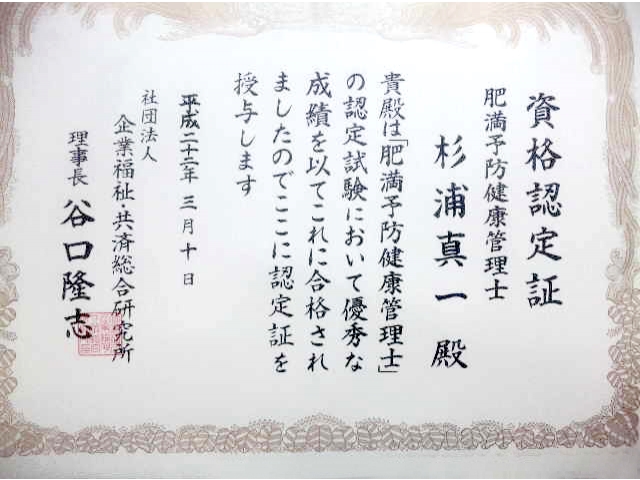 資格認定証
肥満予防健康管理士
杉浦真一 殿
貴殿は「肥満予防健康管理士」
の認定試験において優秀な
成績を以てこれに合格され
ましたのでここに認定証を
授与します
平成二十二年 三月 十日
社団法人
企業福祉・共済総合研究所
理事長 谷口隆志